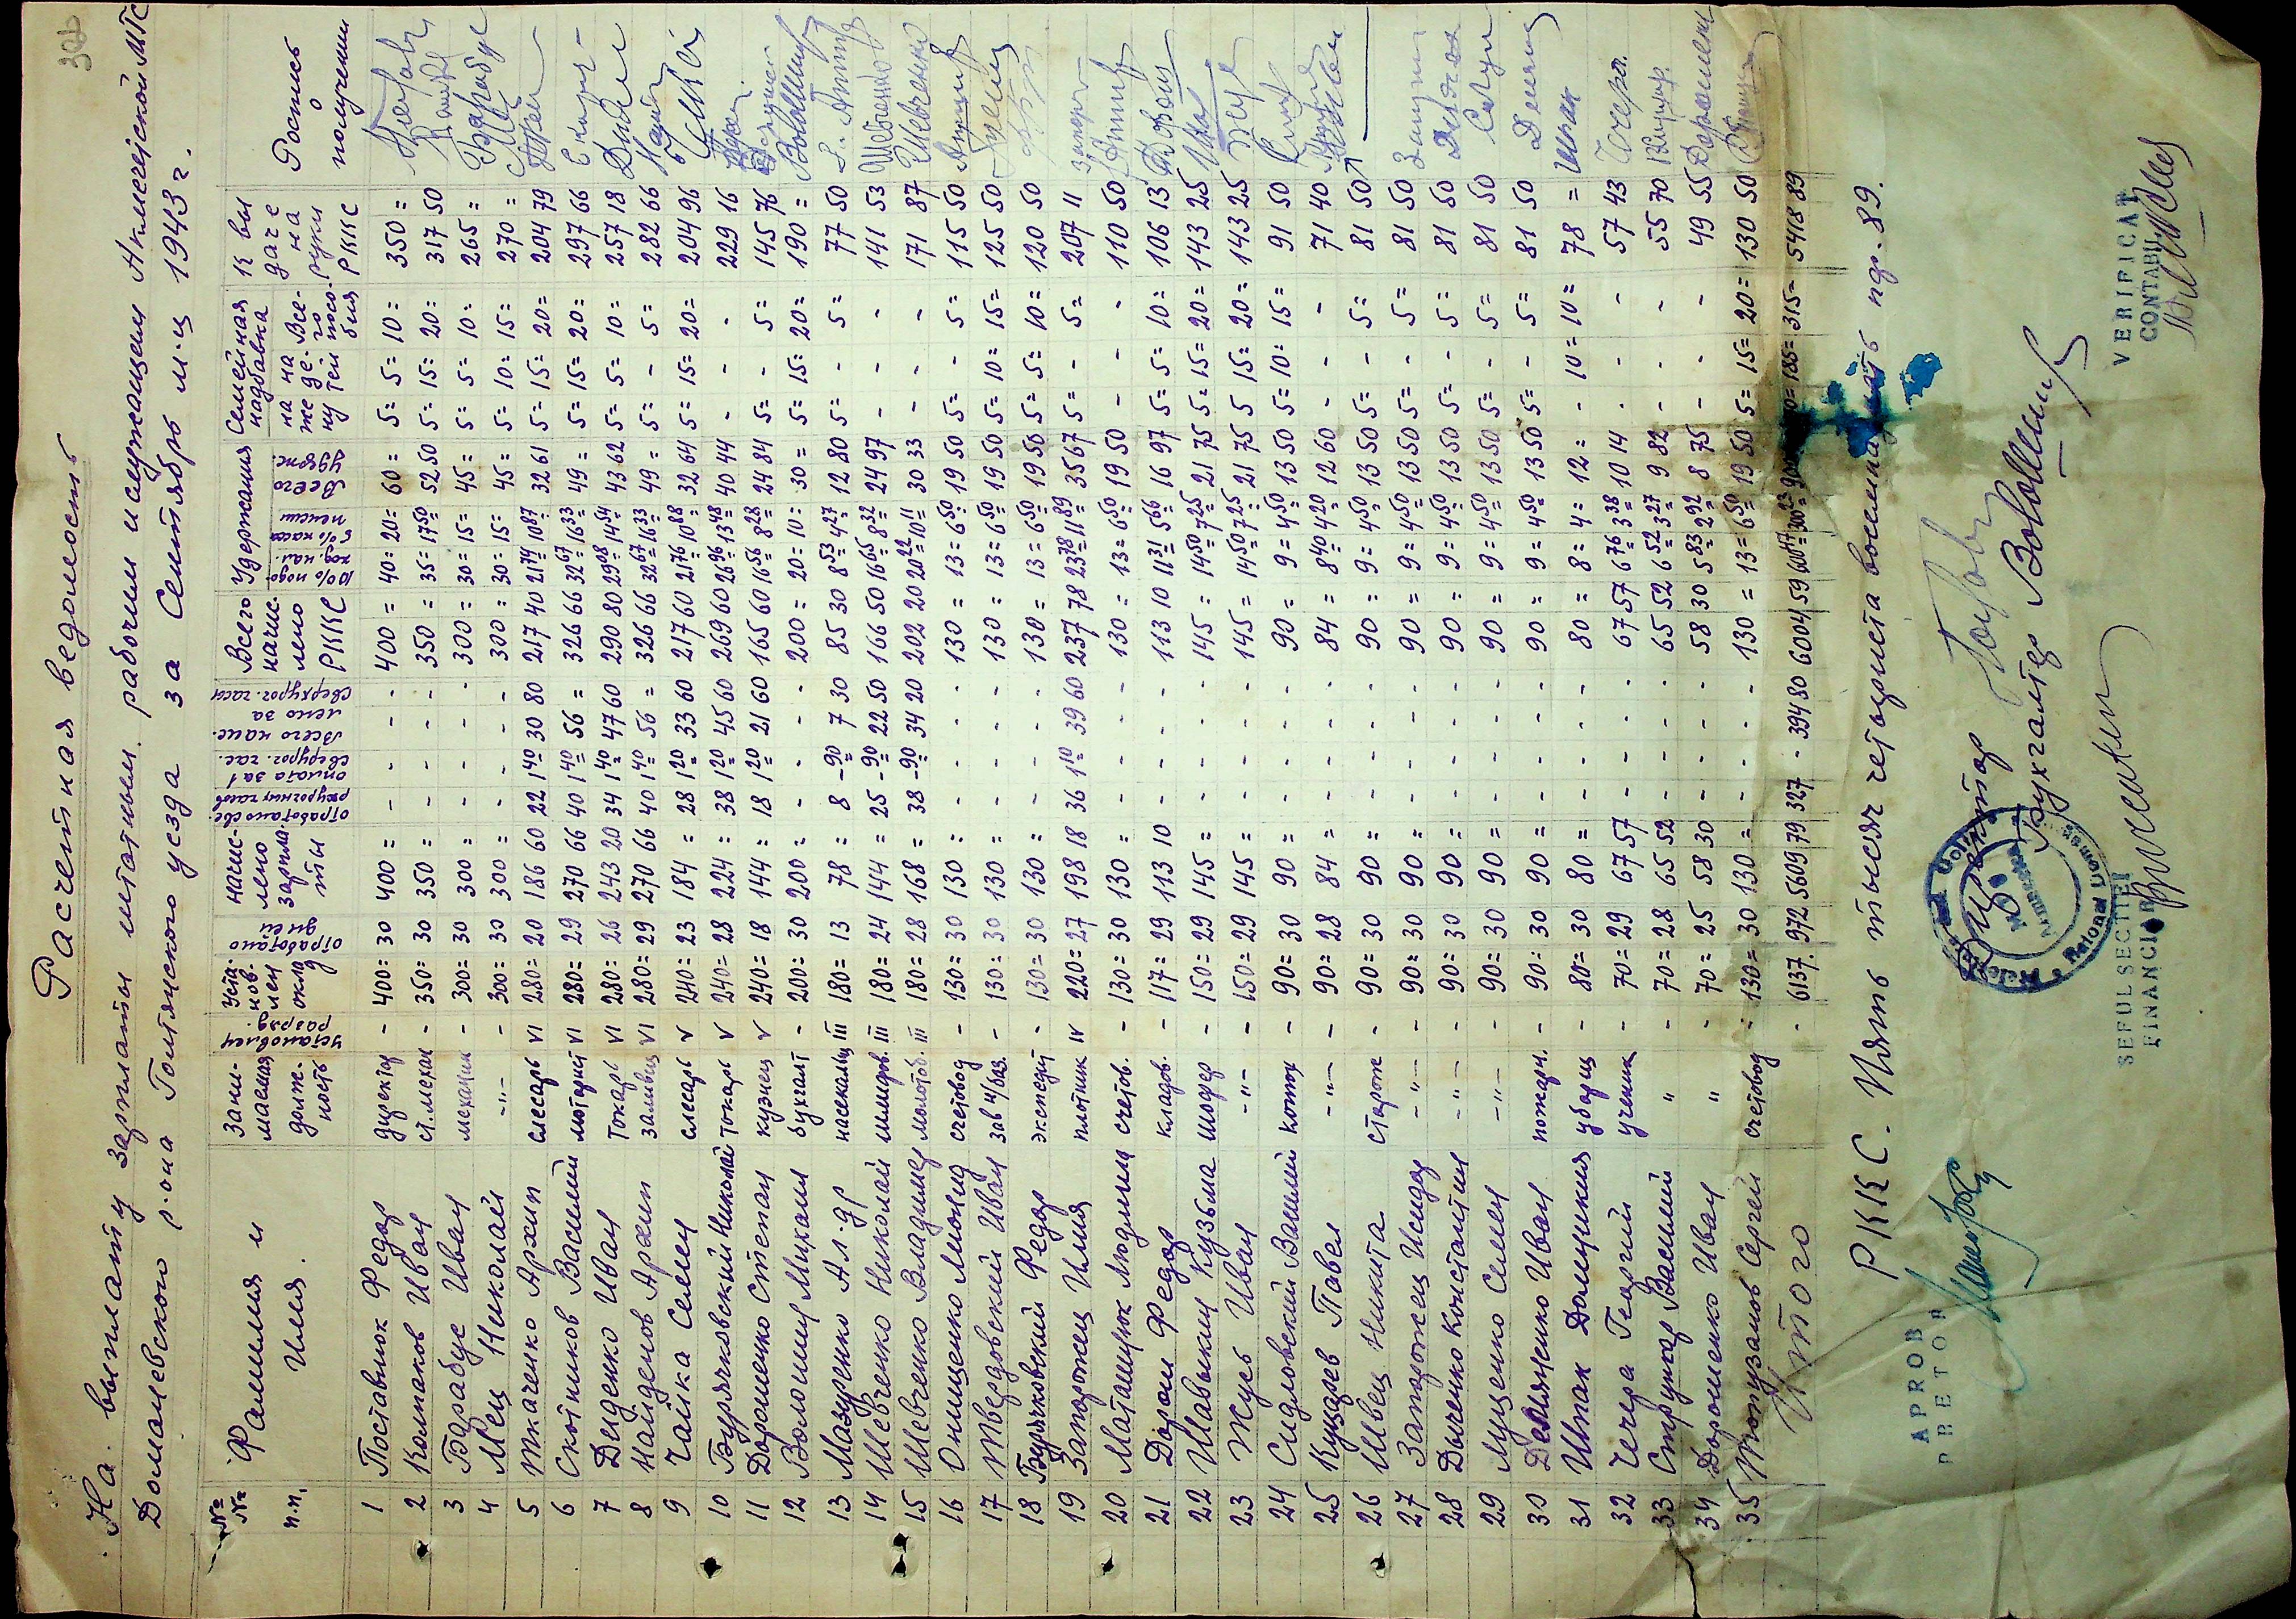 306
Расчетная ведомость
На выплату зарплаты штатным рабочим и служащим Акмечетской МТС
Доманевского р-она Голтянского уезда за Сентябрь м-ц 1943 г.
№ № п.п. | Фамилия и Имя. | Зани- маемая долж- ность | Установлен разряд. | Уста- нов- лен оклад | отработано дней | начис- лено зарпла- ты | отработано све- рхурочных часов | оплата за 1 сверхуроч. час. | Всего начис- лено за сверхуроч. часы | Всего начис- лено РККС | Удержания | 10% подо- ход. нал. | 5% касса пенсии | Всего удерж. | Семейная надбавка | на же ну | на де- тей | Все- го посо- бия | К вы даче на руки РККС | Роспись о получении
1 Поставнюк Федор директор - 400= 30 400= - - - 400= 40= 20= 60= 5= 5= 10= 350=
2 Колпаков Иван ст. механ - 350= 30 350= - - - 350= 35= 17 50 52 50 5= 15= 20= 317 50
3 Барабус Иван механик - 300= 30 300= - - - 300= 30= 15= 45= 5= 5= 10= 265=
4 Мец Николай -"- - 300= 30 300= - - - 300= 30= 15= 45= 5= 10= 15= 270=
5 Ткаченко Архип слесарь VI 280= 20 186 60 22 1 40 30 80 217 40 21 74 10 87 32 61 5= 15= 20= 204 79
6 Скотников Василий моторист VI 280= 29 270 66 40 1 40 56= 326 66 32 67 16 33 49= 5= 15= 20= 297 66
7 Диденко Иван Токарь VI 280= 26 243 20 34 1 40 47 60 290 80 29 08 14 54 43 62 5= 5= 10= 257 18
8 Найденов Архип заливщ VI 280= 29 270 66 40 1 40 56= 326 66 32 67 16 33 49= 5= - 5= 282 66
9 Чайка Семен слесарь V 240= 23 184= 28 1 20 33 60 217 60 21 76 10 88 32 64 5= 15= 20= 204 96
10 Бурячковский Николай токарь V 240= 28 224= 38 1 20 45 60 269 60 26 96 13 48 40 44 - - - 229 16
11 Дорошенко Степан кузнец V 240= 18 144= 18 1 20 21 60 165 60 16 56 8 28 24 84 5= - 5= 145 76
12 Волошин Михаил бухгалт - 200= 30 200= - - - 200= 20= 10= 30= 5= 15= 20= 190=
13 Мазуренко Ал-др насекальщ III 180= 13 78= 8 -90 7 30 85 30 8 53 4 27 12 80 5= - 5= 77 50
14 Шевченко Николай шлифов. III 180= 24 144= 25 -90 22 50 166 50 16 65 8 32 24 97 - - - 141 53
15 Шевченко Владимир молотоб. III 180= 28 168= 38 -90 34 20 202 20 20 22 10 11 30 33 - - - 171 87
16 Онищенко Леонид счетовод - 130= 30 130= - - - 130= 13= 6 50 19 50 5= - 5= 115 50
17 Твердовский Иван зав н/баз. - 130= 30 130= - - - 130= 13= 6 50 19 50 5= 10= 15= 125 50
18 Бурячковский Федор экспедит - 130= 30 130= - - - 130= 13= 6 50 19 50 5= 5= 10= 120 50
19 Запорожец Илия плотник IV 220= 27 198 18 36 1 10 39 60 237 78 23 78 11 89 35 67 5= - 5= 207 11
20 Маташнюк Людмила счетов. - 130= 30 130= - - - 130= 13= 6 50 19 50 - - - 110 50
21 Дорош Федор кладов. - 117= 29 113 10 - - - 113 10 11 31 5 66 16 97 5= 5= 10= 106 13
22 Шавыкин Кузьма шофер - 150= 29 145= - - - 145= 14 50 7 25 21 75 5= 15= 20= 143 25
23 Жусь Иван -"- - 150= 29 145= - - - 145= 14 50 7 25 21 75 5 15= 20= 143 25
24 Сидловский Василий конюх - 90= 30 90= - - - 90= 9= 4 50 13 50 5= 10= 15= 91 50
25 Куцарев Павел -"- - 90= 28 84= - - - 84= 8 40 4 20 12 60 - - - 71 40
26 Швец Никита сторож - 90= 30 90= - - - 90= 9= 4 50 13 50 5= - 5= 81 50
27 Запорожец Исидор -"- - 90= 30 90= - - - 90= 9= 4 50 13 50 5= - 5= 81 50
28 Дыченко Константин -"- - 90= 30 90= - - - 90= 9= 4 50 13 50 5= - 5= 81 50
29 Луценко Семен -"- - 90= 30 90= - - - 90= 9= 4 50 13 50 5= - 5= 81 50
30 Демянченко Иван пожарн. - 90= 30 90= - - - 90= 9= 4 50 13 50 5= - 5= 81 50
31 Шпак Домникия уборщ - 80= 30 80= - - - 80= 8= 4= 12= - 10= 10= 78=
32 Чечера Георгий ученик - 70= 29 67 57 - - - 67 57 6 76 3 38 10 14 - - - 57 43
33 Струнгар Василий " - 70= 28 65 52 - - - 65 52 6 52 3 27 9 82 - - - 55 70
34 Дорошенко Иван " - 70= 25 58 30 - - - 58 30 5 83 2 92 8 75 - - - 49 55
35 Тютюзанов Сергей счетовод - 130= 30 130= - - - 130= 13= 6 50 19 50 5= 15= 20= 130 50
Итого - 6137. 972 5609 79 327 - 394 80 6004 59 600 47 300 23 185= 315= 5418 89
РККС. Пять тысяч четыреста восемнадцать пф. 89.
APROB
PRETOR
Директор
Бухгалтер Волошин
SEFUL SECTIEI
FINANCIARE
VERIFICAT
CONTABIL